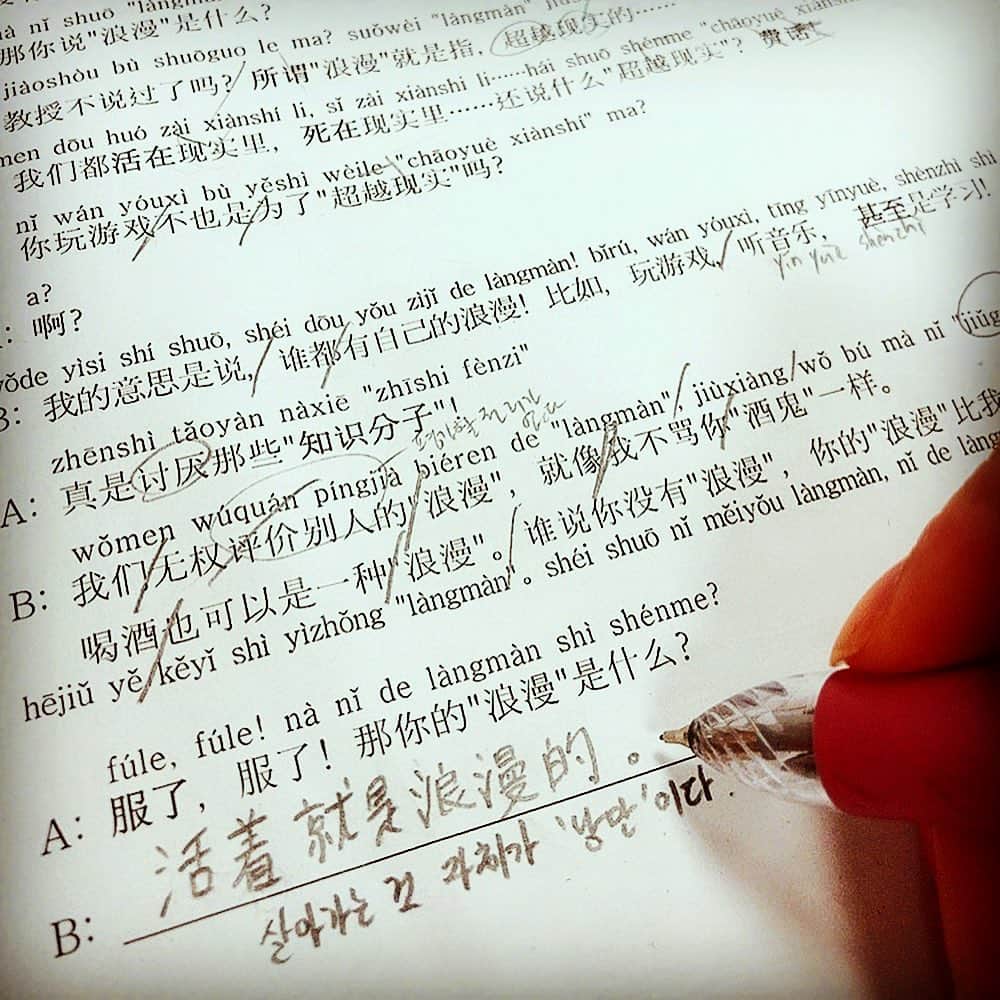 nà nǐ shuō "làngmàn
那你说"浪漫"是什么?
jiàoshòu bù shuōguo le ma? suǒwèi "làngmàn" jiù
教授不说过了吗? 所谓"浪漫"就是指, 超越现实的……
men dōu huó zài xiànshí li, sǐ zài xiànshí li……hái shuō shénme "chāoyuè xiànshí
我们都活在现实里, 死在现实里……还说什么"超越现实"?
nǐ wán yóuxì bù yěshì wèile "chāoyuè xiànshí" ma?
你玩游戏不也是为了"超越现实"吗?
a?
: 啊?
wǒde yìsi shí shuō, shéi dōu yǒu zìjǐ de làngmàn! bǐrú, wán yóuxì, tīng yīnyuè, shènzhì shì
B: 我的意思是说, 谁都有自己的浪漫! 比如, 玩游戏, 听音乐, 甚至是学习!
yīn yuè shenzhi
zhēnshì tǎoyàn nàxiē "zhīshi fènzi"
A: 真是讨厌那些"知识分子"!
wǒmen wúquán píngjià biéren de "làngmàn", jiùxiàng wǒ bú mà nǐ "jiǔg
B: 我们无权评价别人的"浪漫", 就像我不骂你"酒鬼"一样。
喝酒也可以是一种"浪漫"。谁说你没有"浪漫", 你的"浪漫"比我
hējiǔ yě kěyǐ shì yìzhǒng "làngmàn"。shéi shuō nǐ méiyǒu làngmàn, nǐ de làng
fúle, fúle! nà nǐ de làngmàn shì shénme?
A: 服了, 服了! 那你的"浪漫"是什么?
B: 活着就是浪漫的。
살아가는 것 자체가 '낭만'이다.